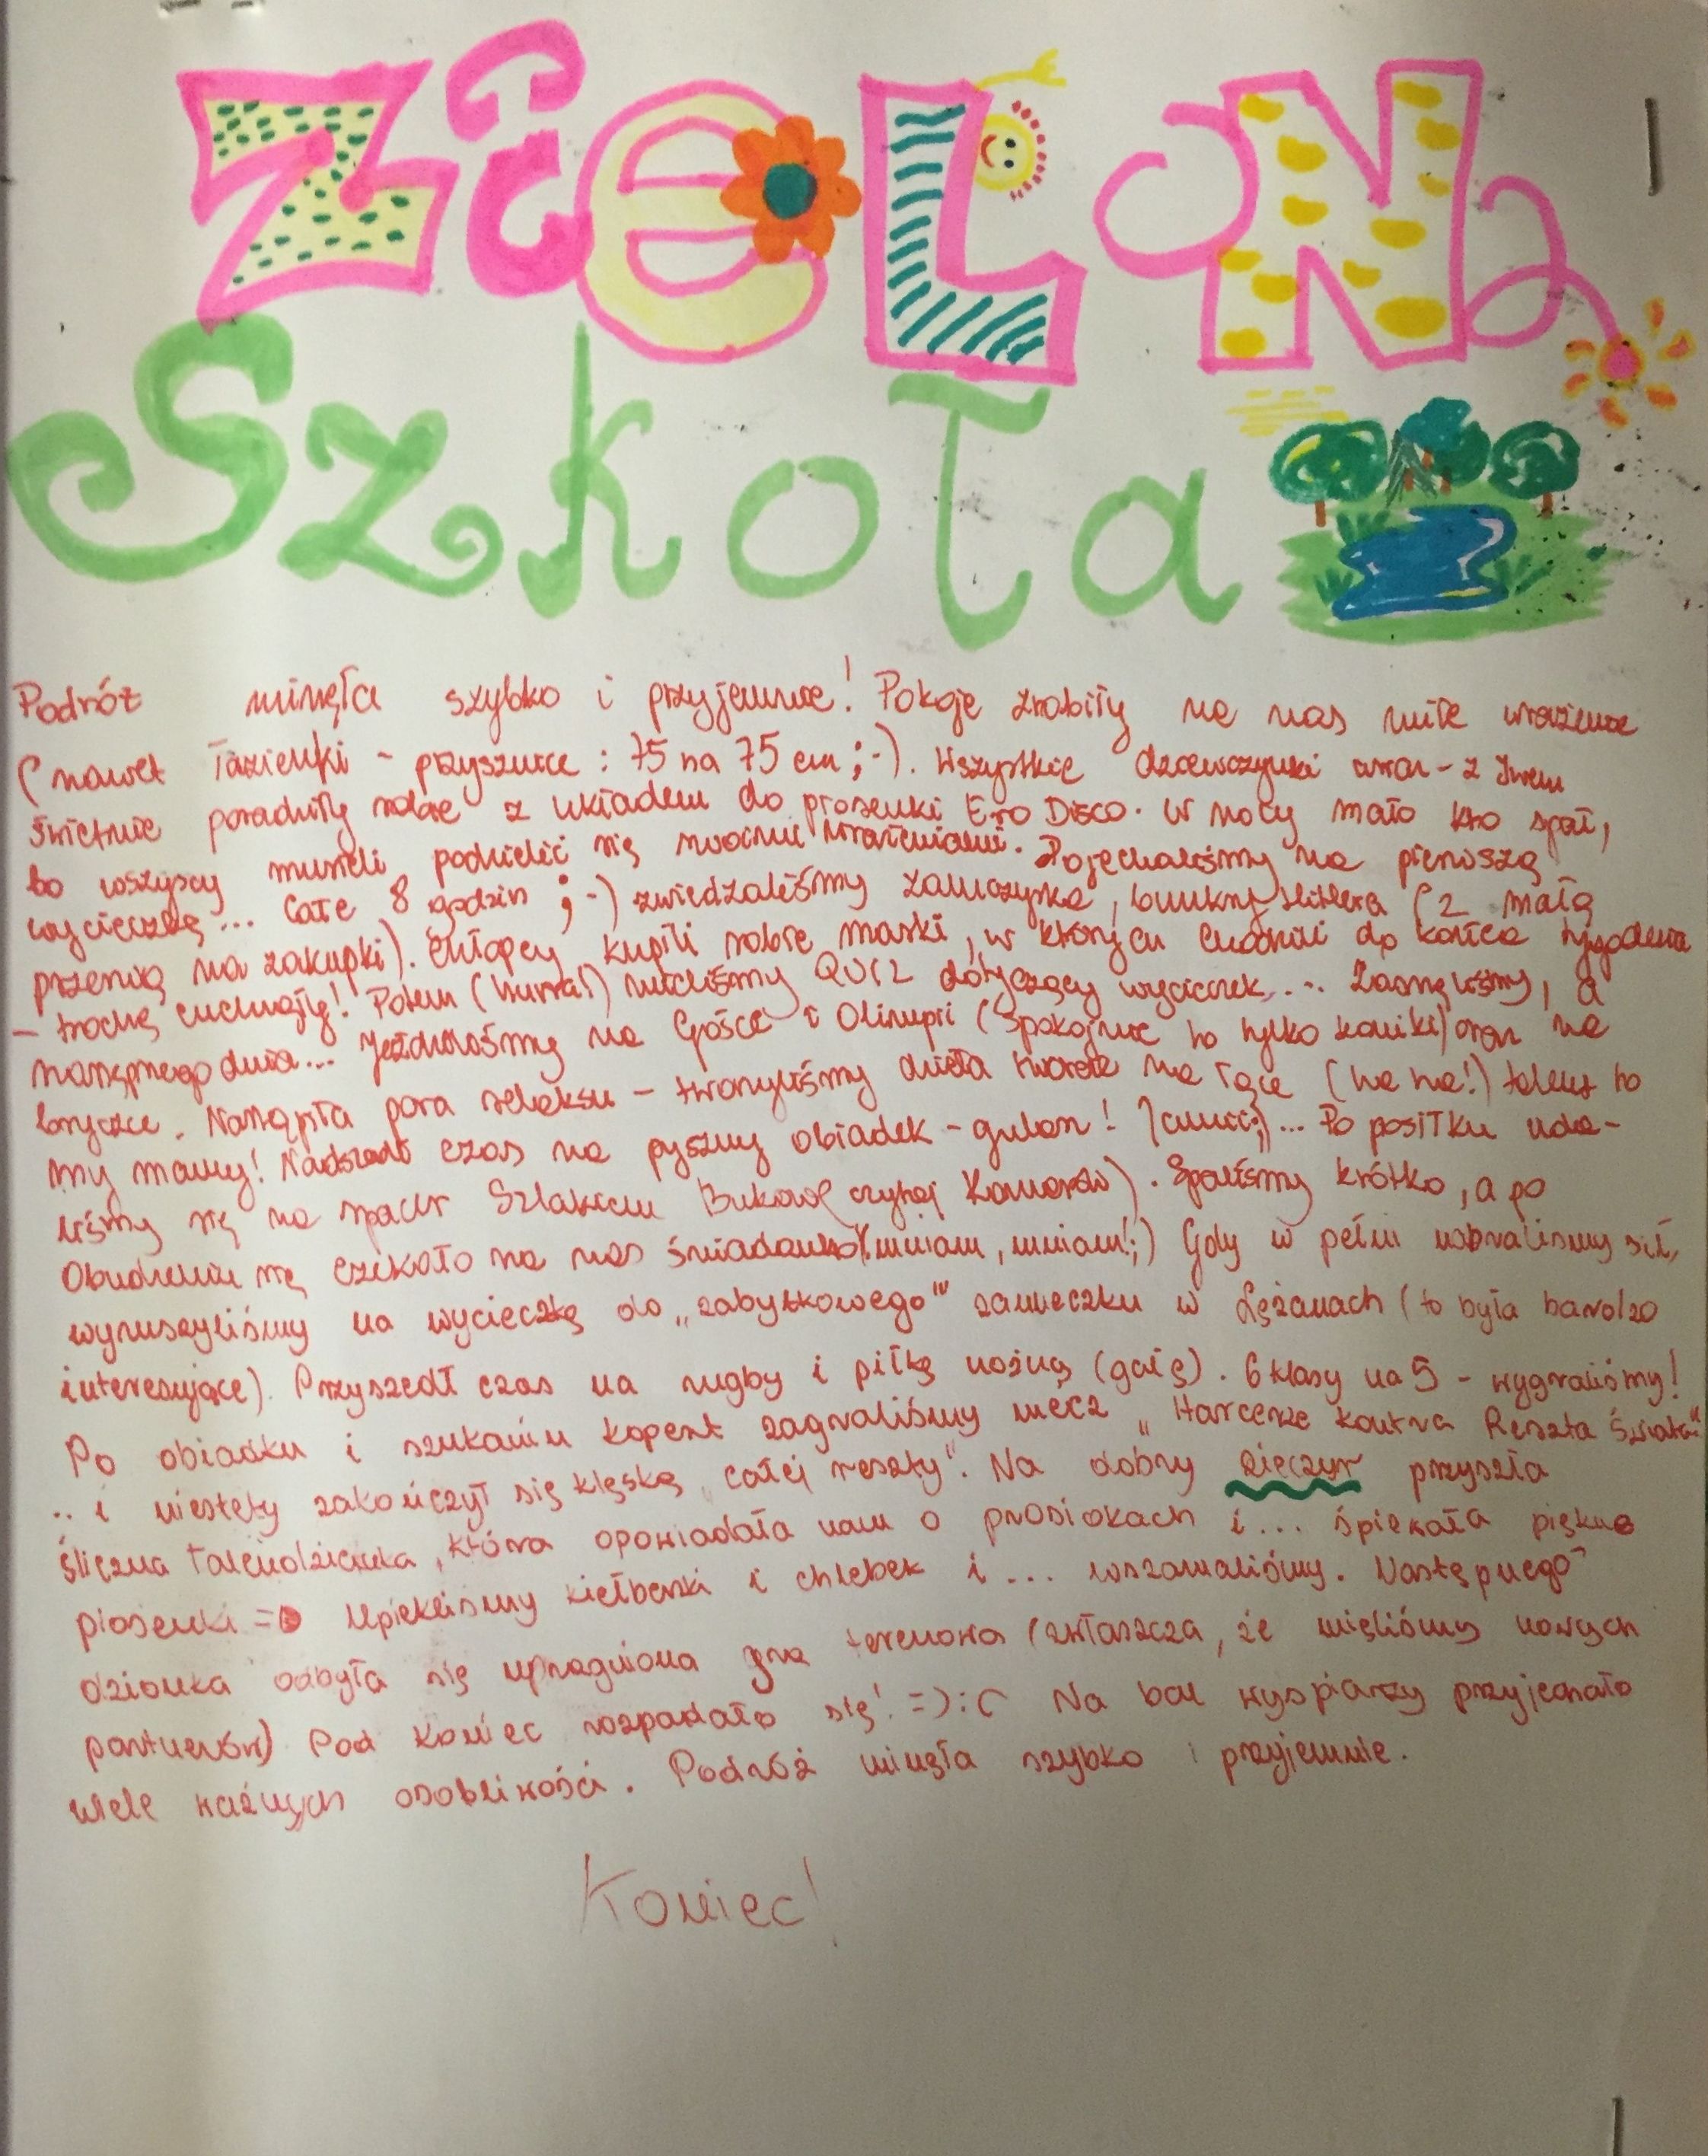 ZiELONa
Szkoła
Podróż minęła szybko i przyjemnie! Pokoje zrobiły na nas miłe wrażenie
(nawet łazienki - prysznice : 75 na 75 cm ;-). Wszystkie dziewczynki wraz - z
świetnie poradziły sobie z układem do piosenki Ero Disco. W nocy mało kto spał,
bo wszyscy musieli podzielić się swoimi wrażeniami. Pojechaliśmy na pierwszą
wycieczkę... Całe 8 godzin ;-) zwiedzaliśmy zamczyska, bunkry Hitlera (z małą
przerwą na zakupki). Chłopcy kupili sobie maski, w których chodzili do końca tygodnia
- trochę cuchnęły! Potem (hurra!) mieliśmy QUIZ dotyczący wycieczek... Zasnęliśmy, a
następnego dnia... Jeździliśmy na Gósce i Olimpii (spokojnie to tylko koniki) oraz na
bryczce. Nastąpiła pora relaksu - tworzyliśmy dzieła na łące (ha ha!) talent to
my mamy! Nadszedł czas na pyszny obiadek - gulasz! ... Po posiłku uda-
liśmy się na spacer Szlakiem Bukowo (czytaj Komarów). Spaliśmy krótko, a po
obudzeniu się czekało na nas śniadanko (mniam, mniam!;) Gdy w pełni nabraliśmy sił,
wyruszyliśmy na wycieczkę do „zabytkowego" zameczku w Łężanach (to była bardzo
interesujące). Przyszedł czas na rugby i piłkę nożną (gałę). 6 klasy na 5 - wygraliśmy!
Po obiadku i szukaniu kopert zagraliśmy mecz „Harcerze kontra Reszta Świata"
.. i niestety zakończył się klęską „całej reszty". Na dobry wieczur przyszła
śliczna , która opowiadała nam o prosiakach i... śpiewała piękne
piosenki => Upiekliśmy kiełbaski i chlebek i... wszamaliśmy. Następnego
dzionka odbyła się upragniona gra terenowa (zwłaszcza, że mięliśmy nowych
partnerów) Pod koniec rozpadało się! =) :( Na bal wyspiarzy przyjechało
wiele ważnych osobliwości. Podróż minęła szybko i przyjemnie.
Koniec!